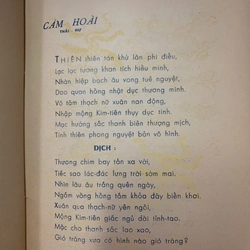 CẢM HOÀI
THÁI VỊ
THIÊN thiên tàn khứ lân phi điểu,
Lạc lạc tương khan tích hiểu minh,
Nhàn hiệp bạch âu vong tuế nguyệt,
Dao quan hồng nhật dục thương minh.
Vô tâm thạch nữ xuân nan động,
Nhập mộng Kim-tiên thụy dục tinh.
Mạc hướng sắc thanh biên thượng mịch,
Tính thiên phong nguyệt bản vô hình.
DỊCH :
Thương chim bay tản xa vời,
Tiếc sao lác-đác lưng trời sớm mai.
Nhìn lâu âu trắng quên ngày,
Ngắm vầng hồng tắm khỏa đáy biển khơi.
Xuân qua thạch-nữ yên ngôi,
Mộng Kim-tiên giấc ngủ dài tỉnh-táo.
Mặc cho thanh sắc lao xao,
Gió trăng xưa có hình nào gió trăng?